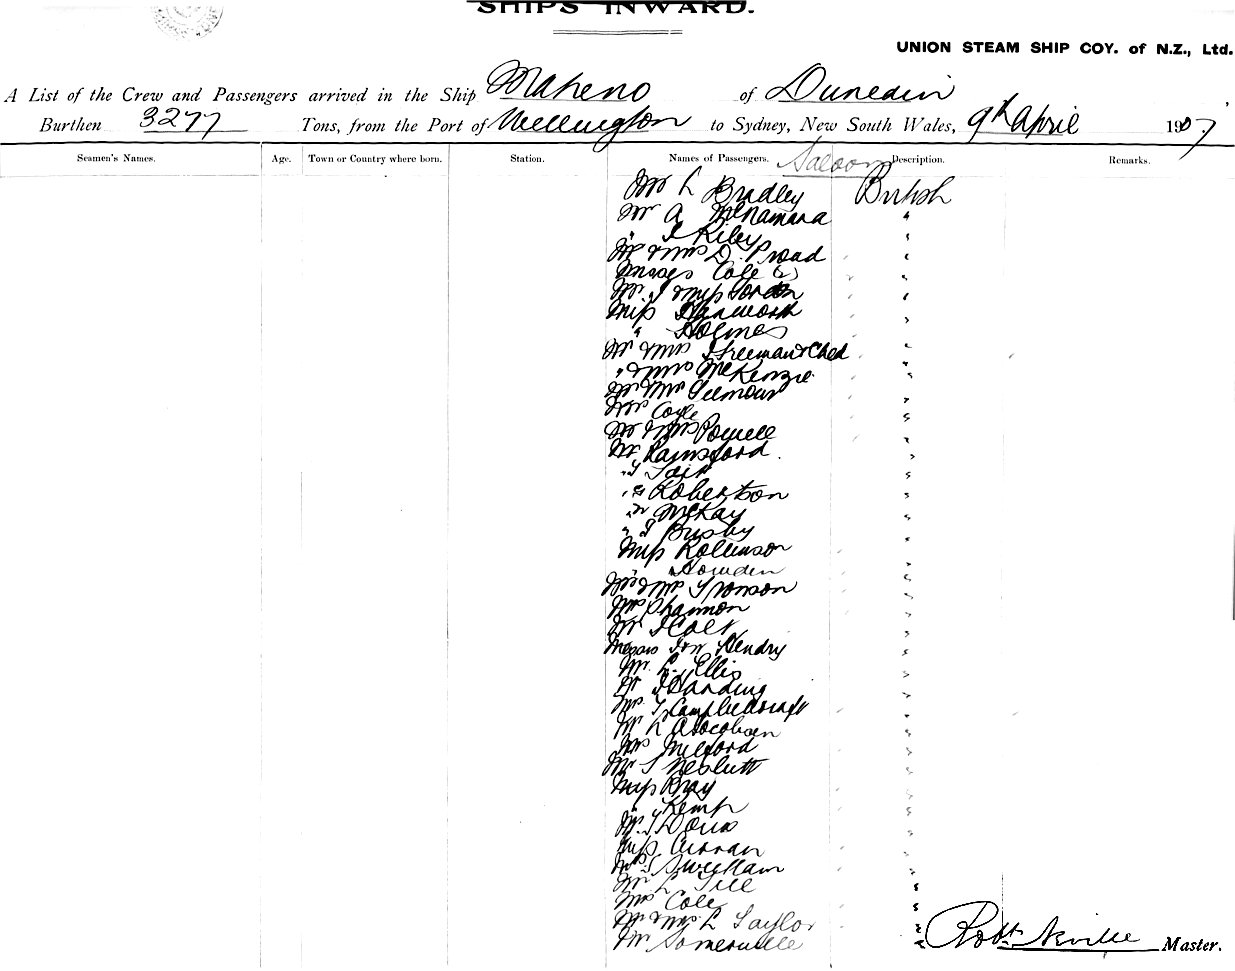 SHIPS INWARD.
UNION STEAM SHIP COY. of N.Z., Ltd.
A List of the Crew and Passengers arrived in the Ship Maheno of Dunedin
Burthen 3277 Tons, from the Port of Wellington to Sydney, New South Wales, 9th April 1907
Seamen's Names. Age. Town or Country where born. Station. Names of Passengers. Saloon Description. Remarks.
Mr L Bradley British
Mr A McNamara "
" Riley "
Mr & Mrs D. Proad "
Misses Cole (2) "
Mr. J & Miss "
Miss "
" Holmes "
Mr & Mrs Freeman & Child "
" & Mrs McKenzie "
Mr & Mrs Gilmour "
Mrs Coyle "
Mr & Mrs Powell "
Mr Rainsford "
" "
" Robertson "
" McKay "
" J Busby "
Miss Robinson "
" Howden "
Mr & Mrs "
Mrs Shannon "
Mr "
Messrs J & W Hendry "
Mr. L. Ellis "
J Harding "
Mrs "
Mr L "
Mrs Milford "
Mr S Nesbitt "
Miss Bray "
" Kemp "
Mr. J "
Miss Curran "
"
Mr L "
Mrs Cole "
Mr & Mrs L Taylor "
Mr Somerville "
Robt. Neville Master.